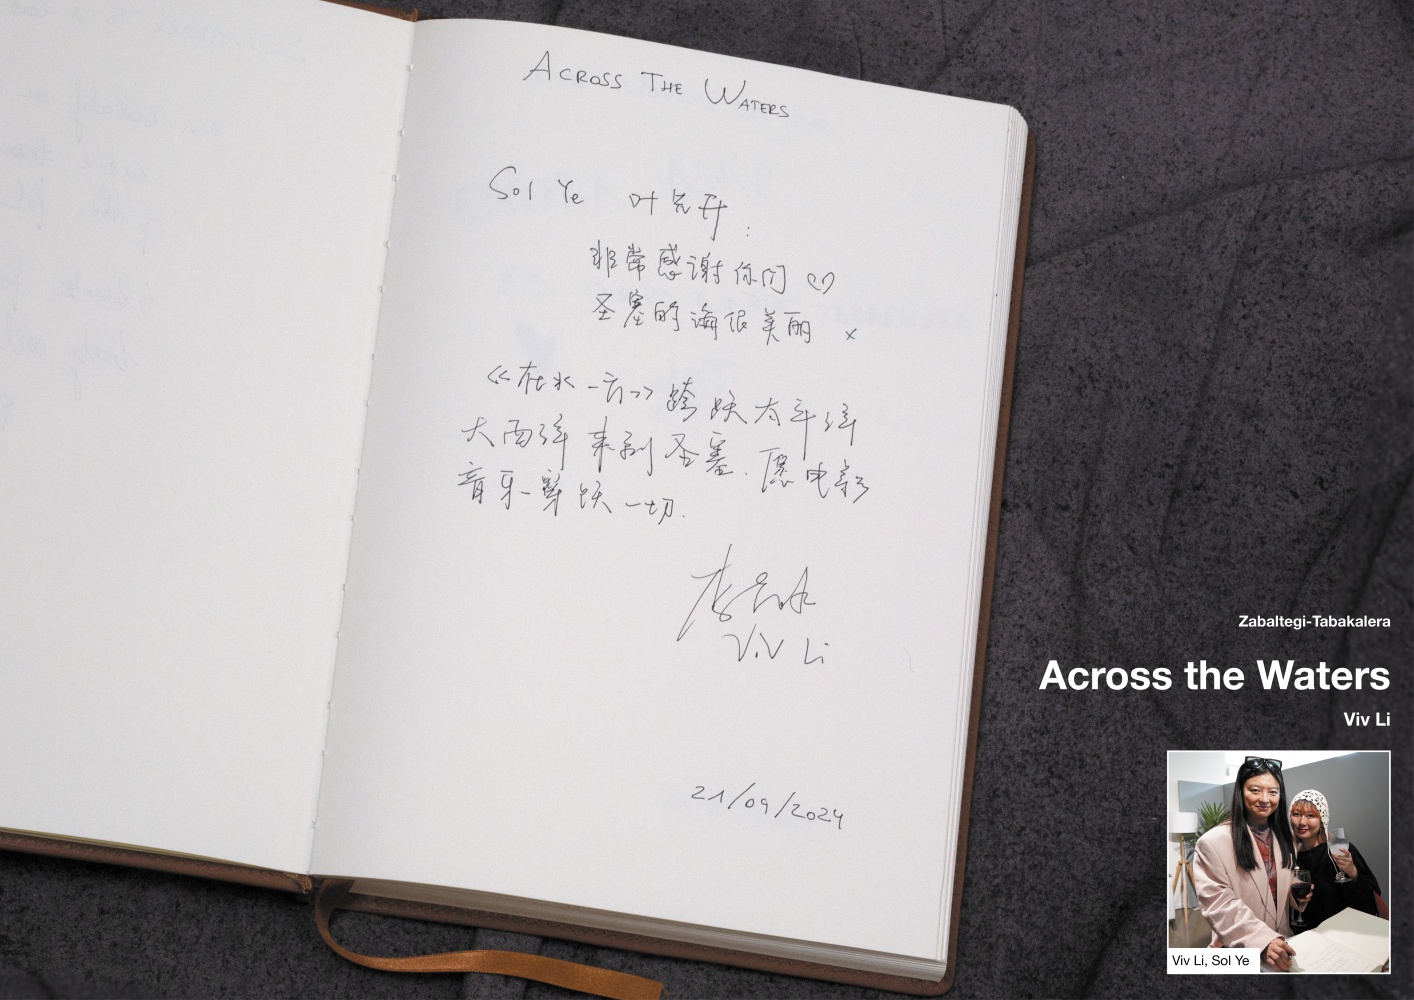 ACROSS THE WATERS
Sol Ye 叶 开:
非常感谢你们 ♡
圣塞的海很美丽 x
《在水一方》跨跃太平洋
大西洋来到圣塞. 愿电影
音乐穿跃一切.
李
Viv Li
21/09/2024
Zabaltegi-Tabakalera
Across the Waters
Viv Li
Viv Li, Sol Ye